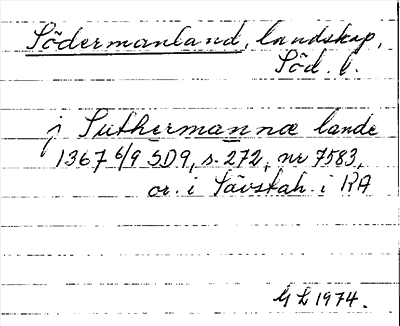 Södermanland, landskap,
Söd. l.
j Suthermannæ lande
1367 6/9 SD9, s. 272, nr 7583,
or. i Sävstah. i RA
G L 1974.